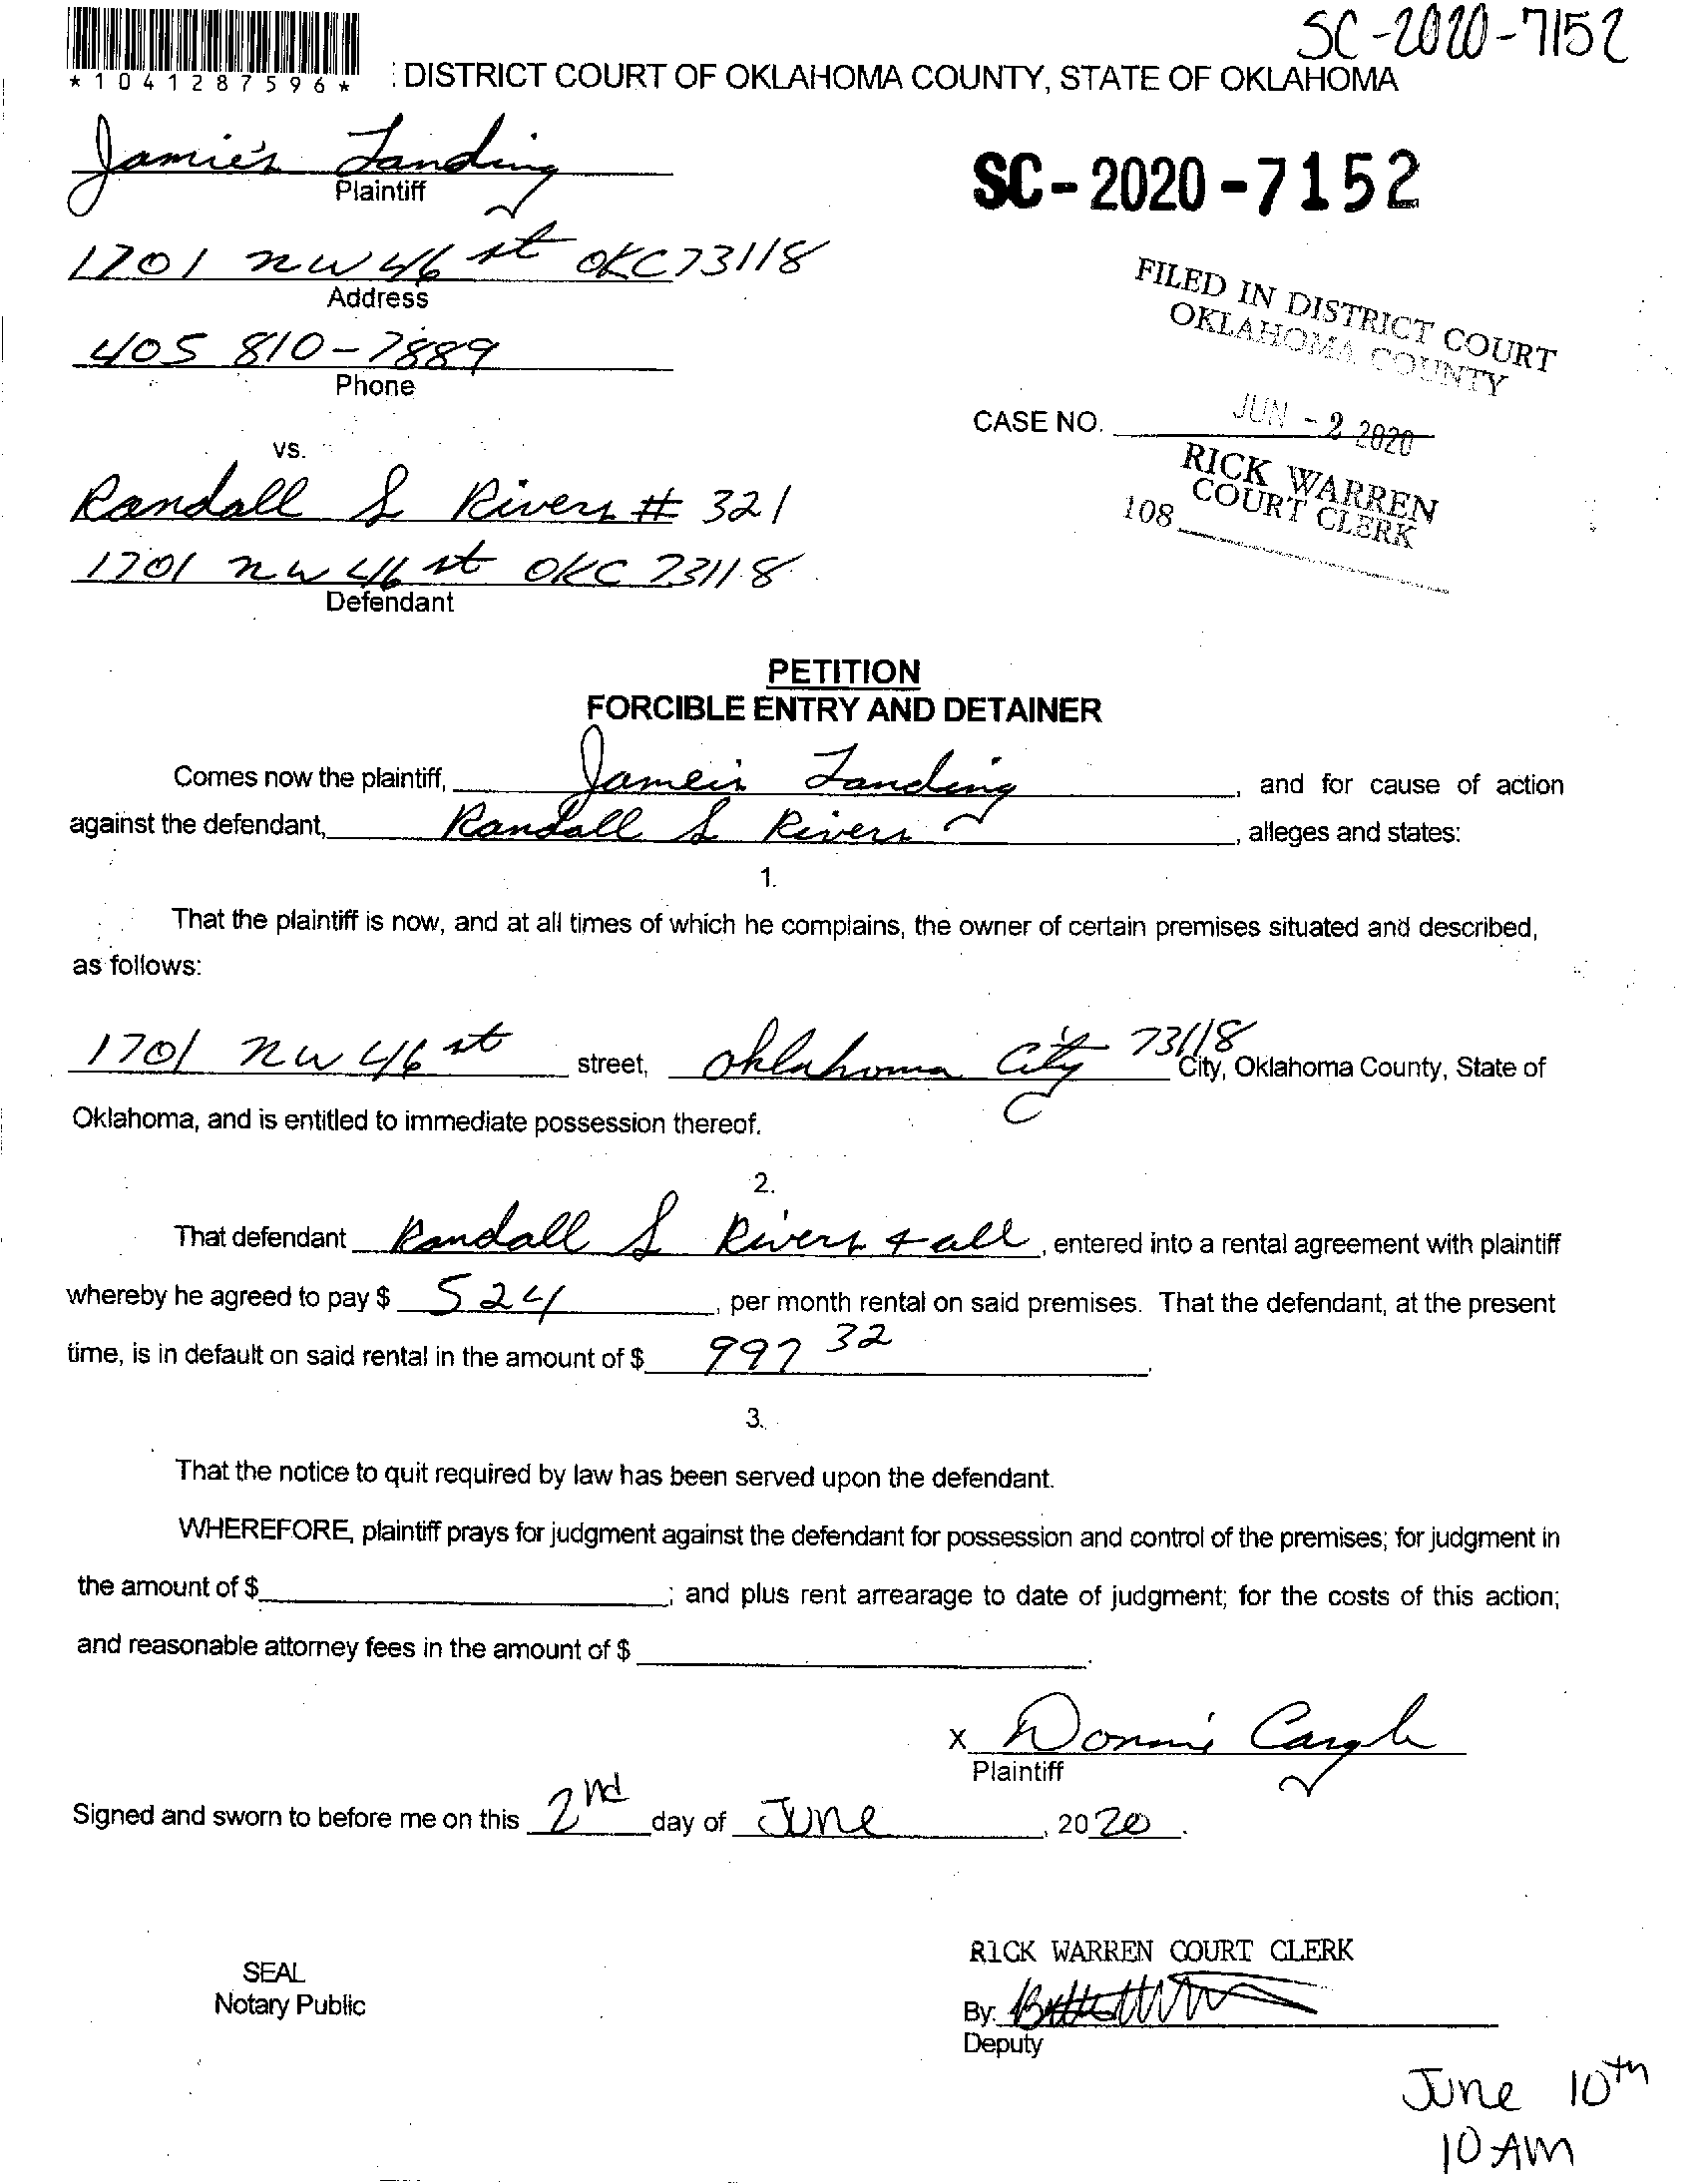 SC-2020-7152
*1041287596*
: DISTRICT COURT OF OKLAHOMA COUNTY, STATE OF OKLAHOMA
Jamie's Landing
Plaintiff
SC-2020-7152
1701 NW 46 st OKC 73118
Address
FILED IN DISTRICT COURT
OKLAHOMA COUNTY
405 810-7889
Phone
JUN - 2 2020
CASE NO.
RICK WARREN
COURT CLERK
108
vs.
Randall S Rivers # 321
1701 NW 46 st OKC 73118
Defendant
PETITION
FORCIBLE ENTRY AND DETAINER
Comes now the plaintiff, Jameis Landing, and for cause of action
against the defendant, Randall S Rivers, alleges and states:
1.
That the plaintiff is now, and at all times of which he complains, the owner of certain premises situated and described,
as follows:
1701 NW 46 st street, Oklahoma City 73118 City, Oklahoma County, State of
Oklahoma, and is entitled to immediate possession thereof.
2.
That defendant Randall S Rivers + all, entered into a rental agreement with plaintiff
whereby he agreed to pay $ 524, per month rental on said premises. That the defendant, at the present
time, is in default on said rental in the amount of $ 997 32.
3.
That the notice to quit required by law has been served upon the defendant.
WHEREFORE, plaintiff prays for judgment against the defendant for possession and control of the premises; for judgment in
the amount of $ ; and plus rent arrearage to date of judgment; for the costs of this action;
and reasonable attorney fees in the amount of $ .
x Donnie
Plaintiff
Signed and sworn to before me on this 2nd day of June, 2020.
RICK WARREN COURT CLERK
SEAL
Notary Public
By:
Deputy
June 10th
10 AM